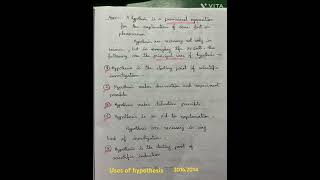 VITA
A hypothesis is a provisional supposition
for the explanation of some fact or
phenomenon
Hypothesis are necessary not only in
science, but in everyday life as well. The
following are the principal uses of hypothesis :-
① Hypothesis is the starting point of scientific
investigation
② Hypothesis makes observation and experiment
possible
③ Hypothesis makes deduction possible
④ Hypothesis is an aid to explanation.
Hypothesis are necessary in any
kind of investigation.
⑤ Hypothesis is the starting point of
scientific induction
Uses of hypothesis 2016,2014